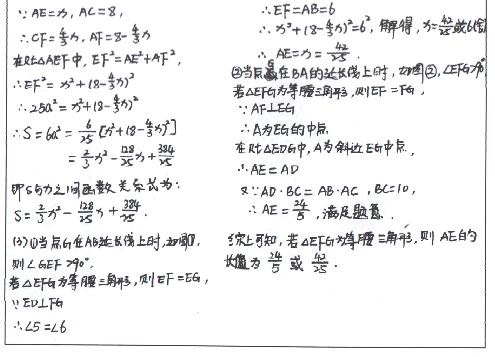 ∵AE=x, AC=8,
∴CF=4/3x, AF=8-4/3x
在Rt△AEF中, EF²=AE²+AF²,
∴EF²=x²+(8-4/3x)²
∴25a²=x²+(8-4/3x)²
∴S=6a²=6/25[x²+(8-4/3x)²]
=2/3x²-128/25x+384/25
即S与x之间函数关系式为:
S=2/3x²-128/25x+384/25.
(3)①当点G在AB延长线上时,如图①,
则∠GEF>90°.
若△EFG为等腰三角形,则EF=EG,
∵ED⊥FG
∴∠5=∠6
∴EF=AB=6
∴x²+(8-4/3x)²=6², 解得, x=42/25或6(舍)
∴AE=x=42/25.
②当点G在BA的延长线上时,如图②,∠EFG>90°
若△EFG为等腰三角形,则EF=FG,
∵AF⊥EG
∴A为EG的中点
在Rt△EDG中,A为斜边EG中点,
∴AE=AD
又∵AD·BC=AB·AC, BC=10,
∴AE=24/5,满足题意.
综上可知,若△EFG为等腰三角形,则AE的
长值为24/5或42/25.